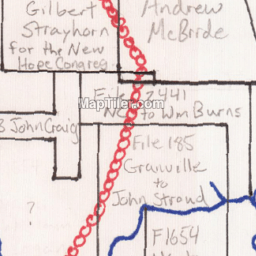 Gilbert
Strayhorn
for the New
Hope Congreg
Andrew
McBride
File 2441
NC to Wm Burns
MapTiler.com
John Craig
File 185
Granville
to
John Stroud
?
F1654